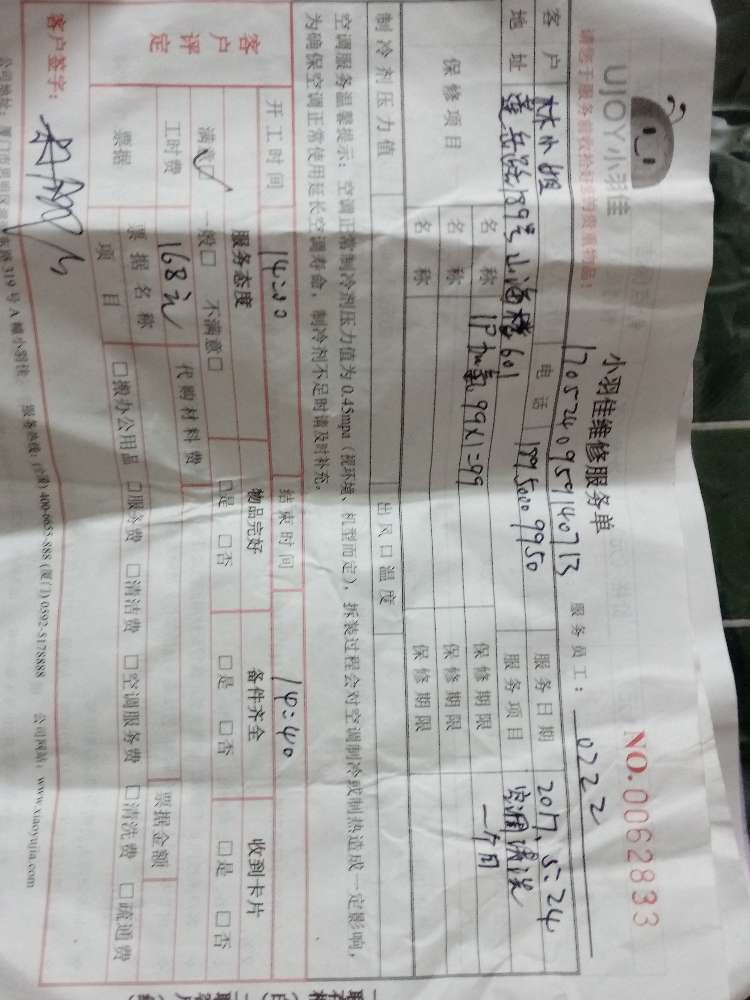 UJOY小羽佳
小羽佳维修服务单
NO.0062833
请您于服务前收拾好您的贵重物品!
17052409591140713
服务员工: 0722
客户 林小姐 电话 189 5000 9950 服务日期 2017、5:24
地址 莲岳路189号 601 服务项目 空调清洗
保修项目 名称 1P加氟 99×1=99 保修期限 一个月
名称 保修期限
名称 保修期限
制冷剂压力值 出风口温度
空调服务温馨提示:空调正常制冷剂压力值为0.45mpa(视环境、机型而定),拆装过程会对空调制冷或制热造成一定影响,
为确保空调正常使用延长空调寿命,制冷剂不足时请及时补充。
开工时间 14:00 结束时间 14:40
客户评定 服务态度 物品完好 备件齐全 收到卡片
满意□✓ 一般□ 不满意□ □是 □否 □是 □否 □是 □否
工时费 168元 代购材料费
票据 票据名称 票据金额
项目 □搬办公用品 □服务费 □清洁费 □空调服务费 □清洗费 □疏通费
客户签字:
319号A幢小羽佳 服务热线:(全国)400-0655-888 (厦门)0592-5178888 公司网站:www.xiaoyujia.com